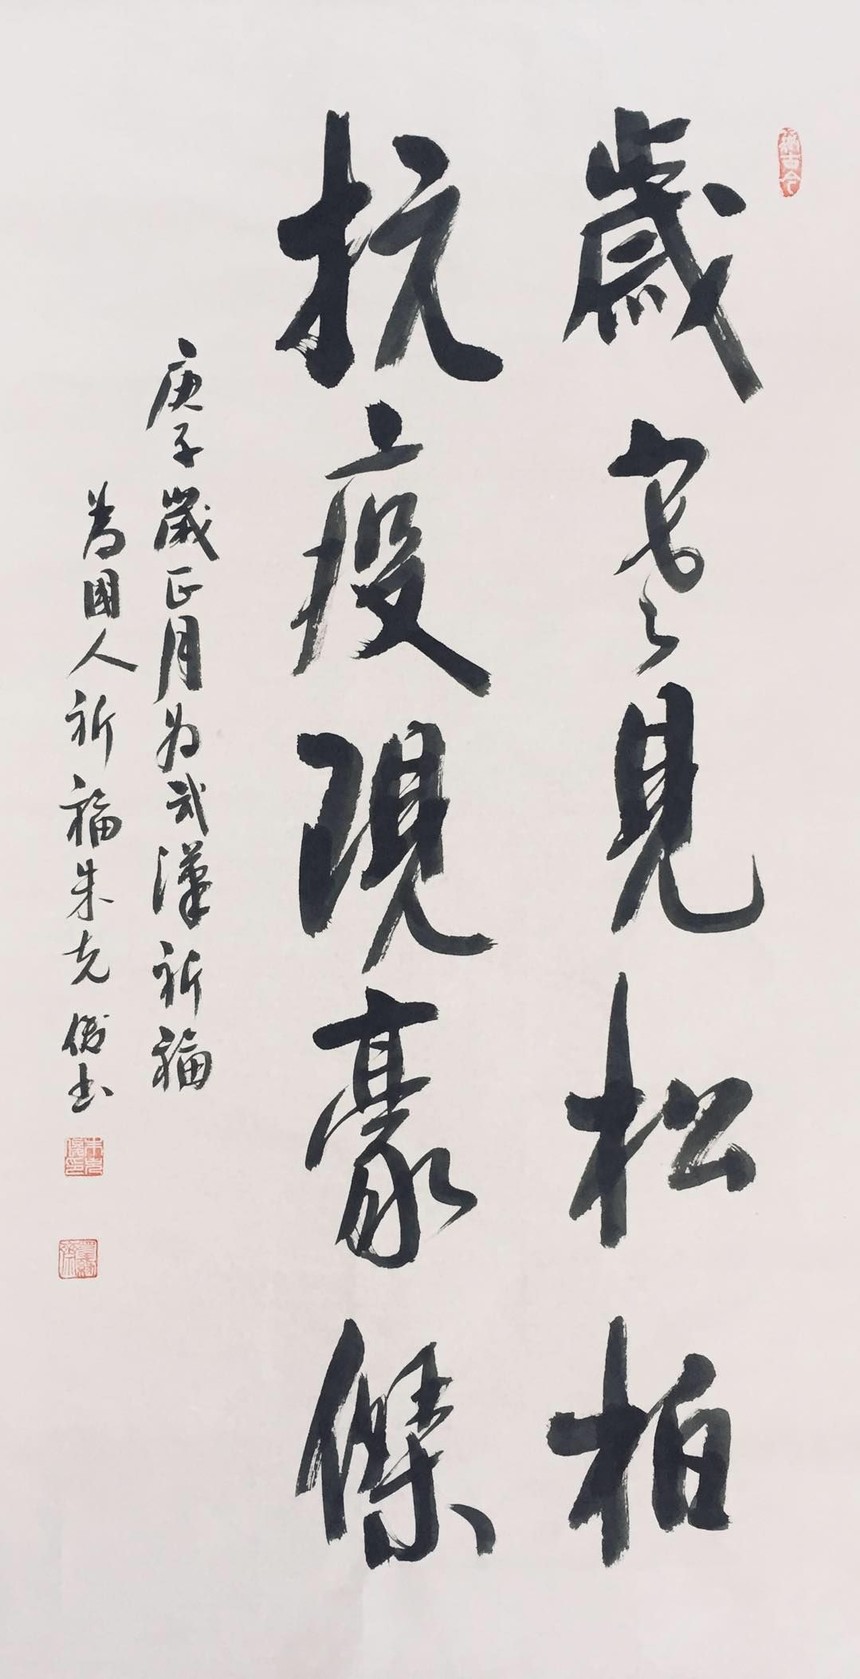 歲寒見松柏
抗疫現豪傑
庚子歲正月为武漢祈福
為國人祈福朱克俊书